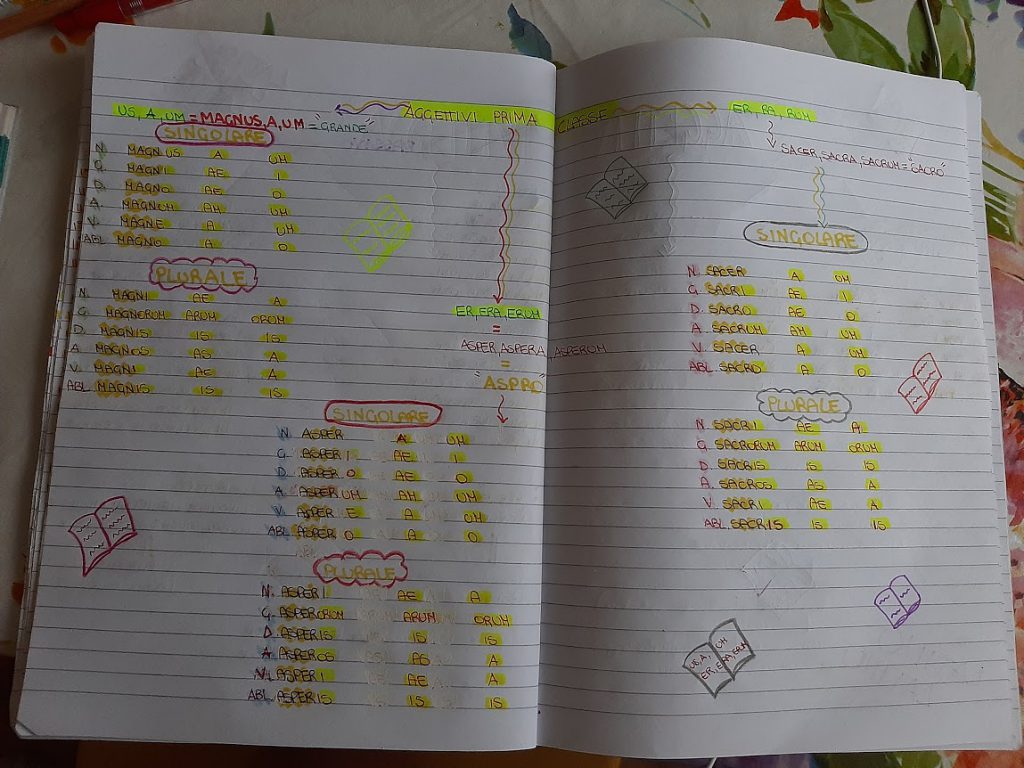 AGGETTIVI PRIMA CLASSE
US, A, UM = MAGNUS, A, UM = "GRANDE"
SINGOLARE
N. MAGNUS A UM
G. MAGNI AE I
D. MAGNO AE O
A. MAGNUM AM UM
V. MAGNE A UM
ABL MAGNO A O
PLURALE
N. MAGNI AE A
G. MAGNORUM ARUM ORUM
D. MAGNIS IS IS
A. MAGNOS AS A
V. MAGNI AE A
ABL MAGNIS IS IS
ER, ERA, ERUM
=
ASPER, ASPERA, ASPERUM
=
"ASPRO"
SINGOLARE
N. ASPER A UM
G. ASPER I AE I
D. ASPER O AE O
A. ASPER UM AM UM
V. ASPER E A UM
ABL ASPER O A O
PLURALE
N. ASPER I AE A
G. ASPERORUM ARUM ORUM
D. ASPER IS IS IS
A. ASPEROS AS A
V. ASPER I AE A
ABL ASPER IS IS IS
ER, RA, RUM
SACER, SACRA, SACRUM = "SACRO"
SINGOLARE
N. SACER A UM
G. SACRI AE I
D. SACRO AE O
A. SACRUM AM UM
V. SACER A UM
ABL SACRO A O
PLURALE
N. SACRI AE A
G SACRORUM ARUM ORUM
D. SACRIS IS IS
A. SACROS AS A
V. SACRI AE A
ABL SACRIS IS IS
US, A, UM